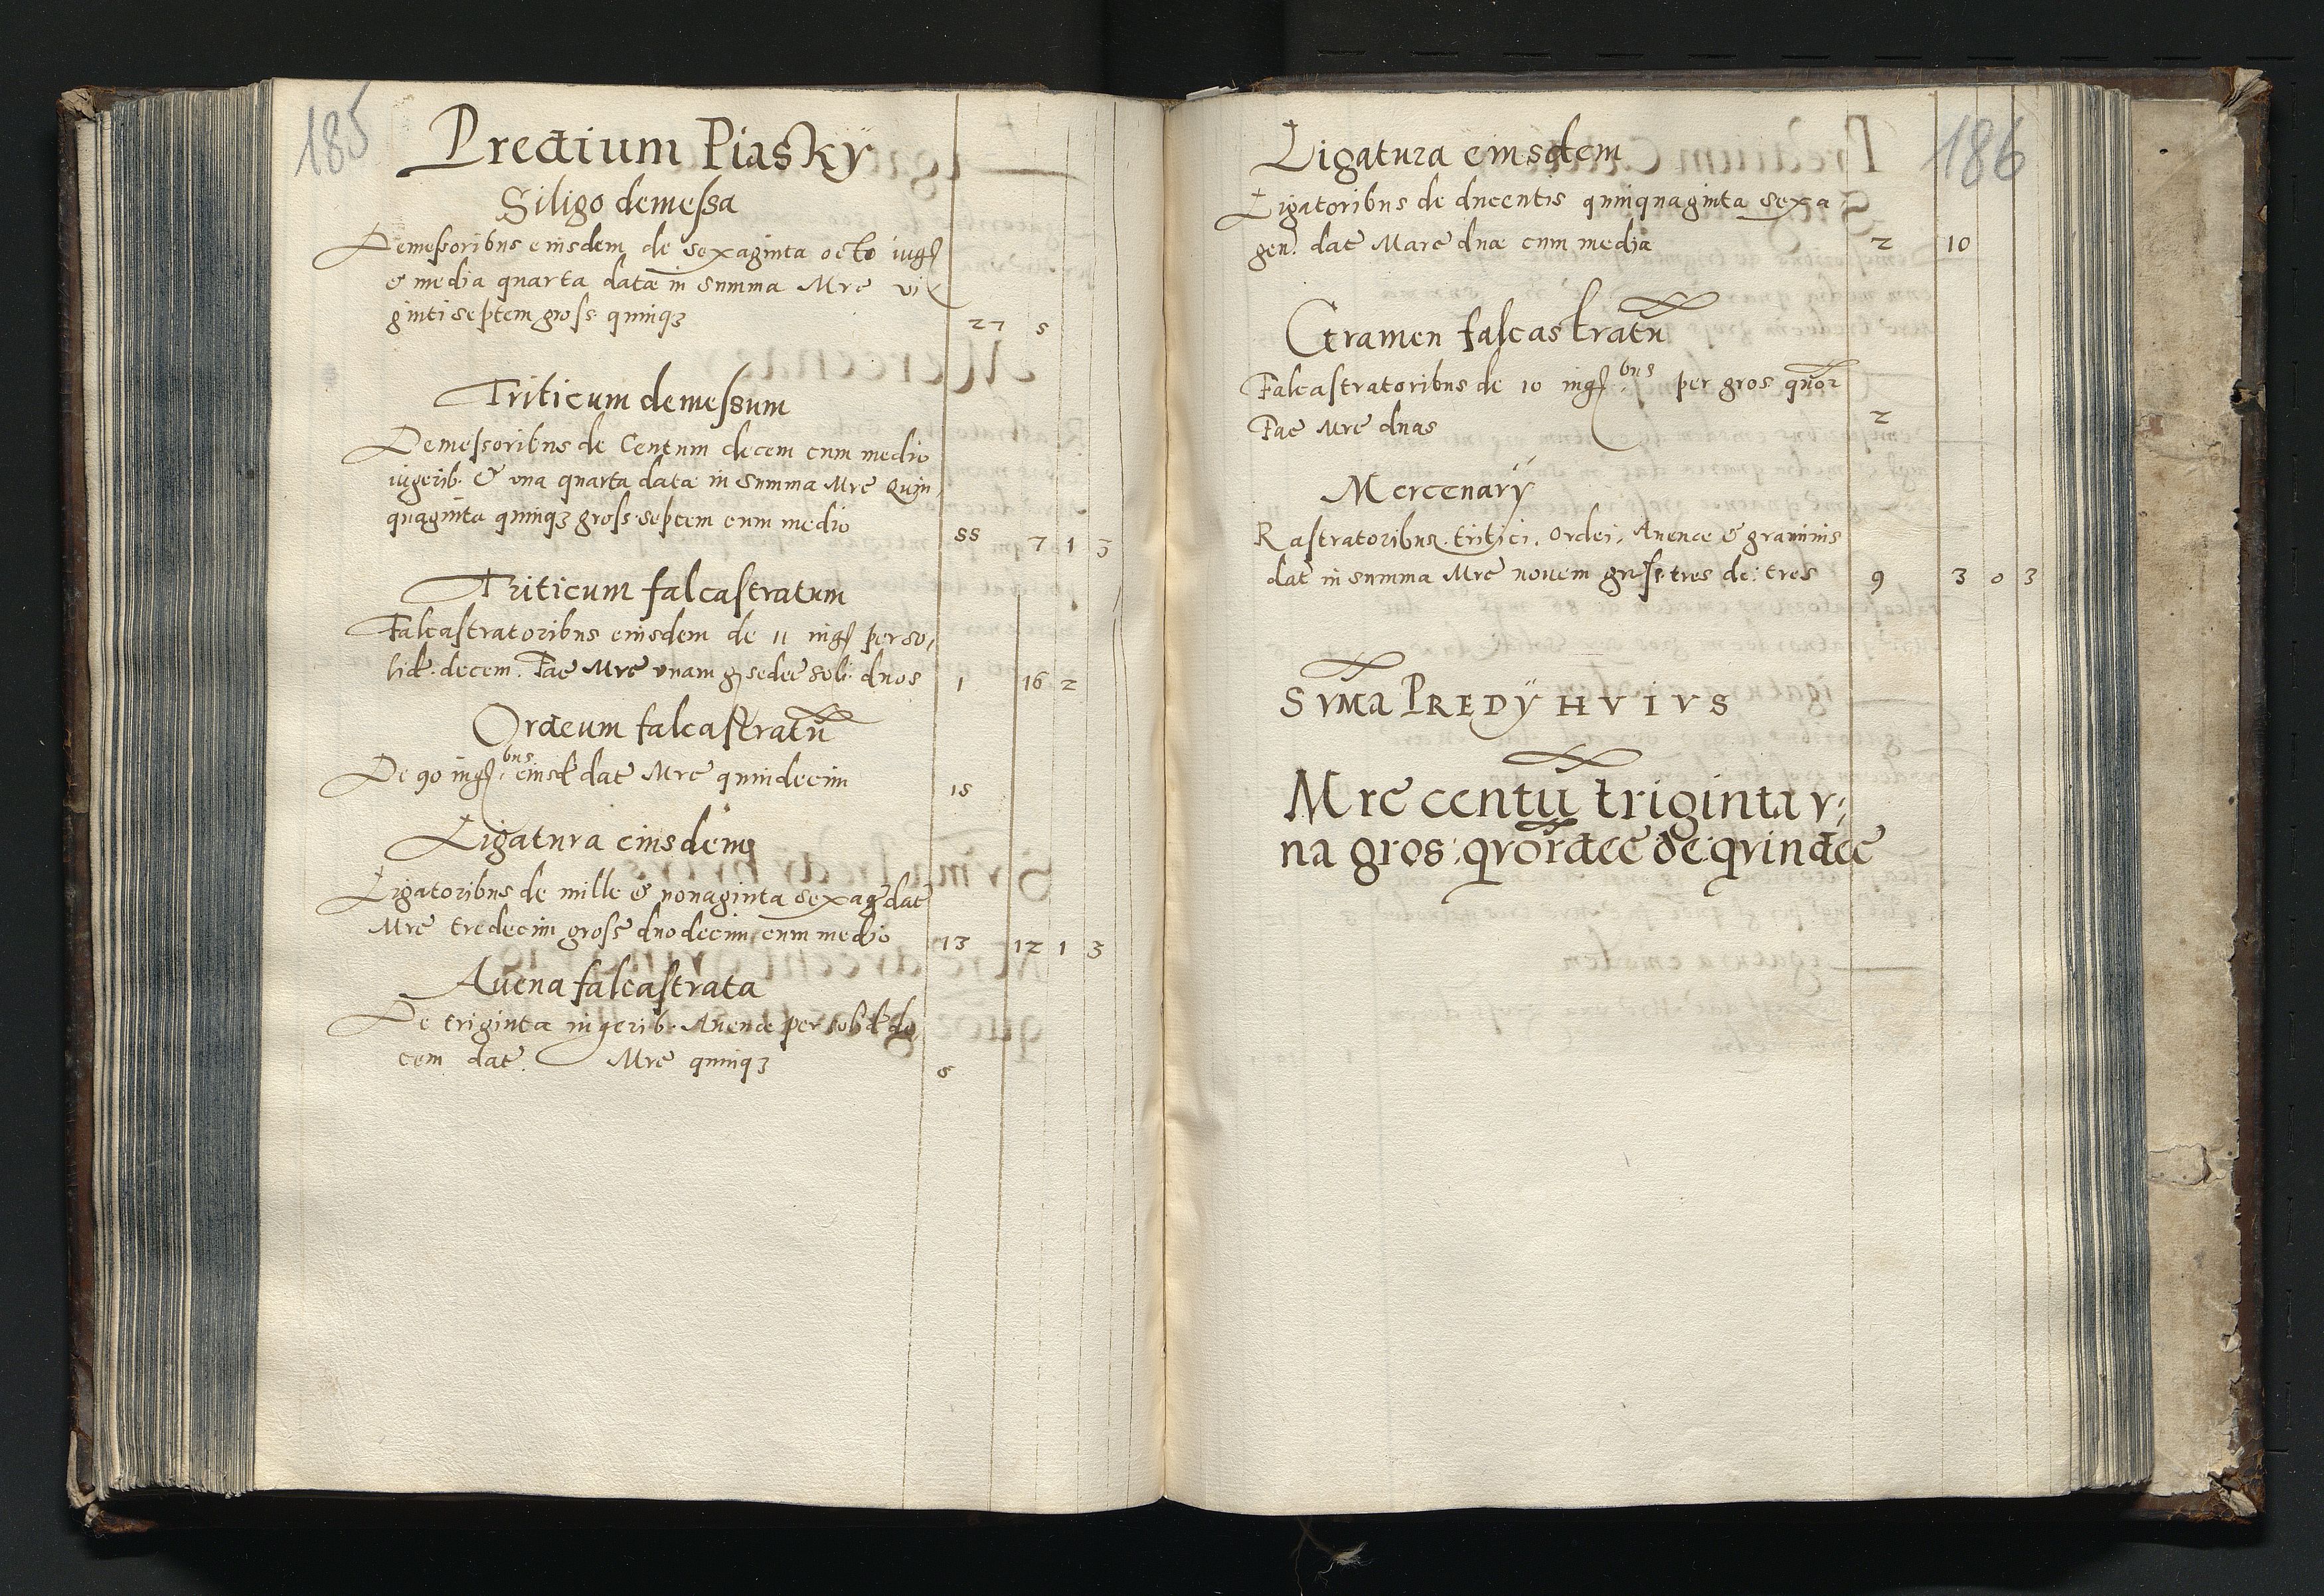 185
Predium Piasky
Siligo demessa
Demessoribus eiusdem de sexaginta octo iug
& media quarta datæ in summa Mrc vi
ginti septem gross quinqз 27 5
Triticum demessum
Demessoribus de Centum decem cum medio
iugerib. & una quarta datæ in summa Mrc Quin,
quaginta quinqз gross. septem cum medio 55 7 1 3
Triticum falcastratum
Falcastratoribus eiusdem de 11 iug per so,
lid. decem. Fac Mrc unam g sedec soli. duos 1 16 2
Ordeum falcastratū
De 90 iug.bus eiusd dat Mrc quindecim 15
Ligatura eiusdem
Ligatoribus de mille & nonaginta sexag dat
Mrc tredecim gross duodecim cum medio 13 12 1 3
Avena falcastrata
De triginta iugerib. Avenæ per solid de,
cem dat. Mrc quinqз 5
186
Ligatura eiusdem
Ligatoribus de ducentis quinquaginta sexa
gen. dat Marc duæ cum media 2 10
Gramen falcastratū
Falcastratoribus de 10 iug.bus per gros quor
Fac Mrc duas 2
Mercenarÿ
Rastratoribus. tritici. Ordei, Avenæ & graminis
dat in summa Mrc novem gross. tres de: tres 9 3 0 3
SVMA PREDŸ HVIVS
Mrc centū triginta v,
na gros: qvordec de: qvindec